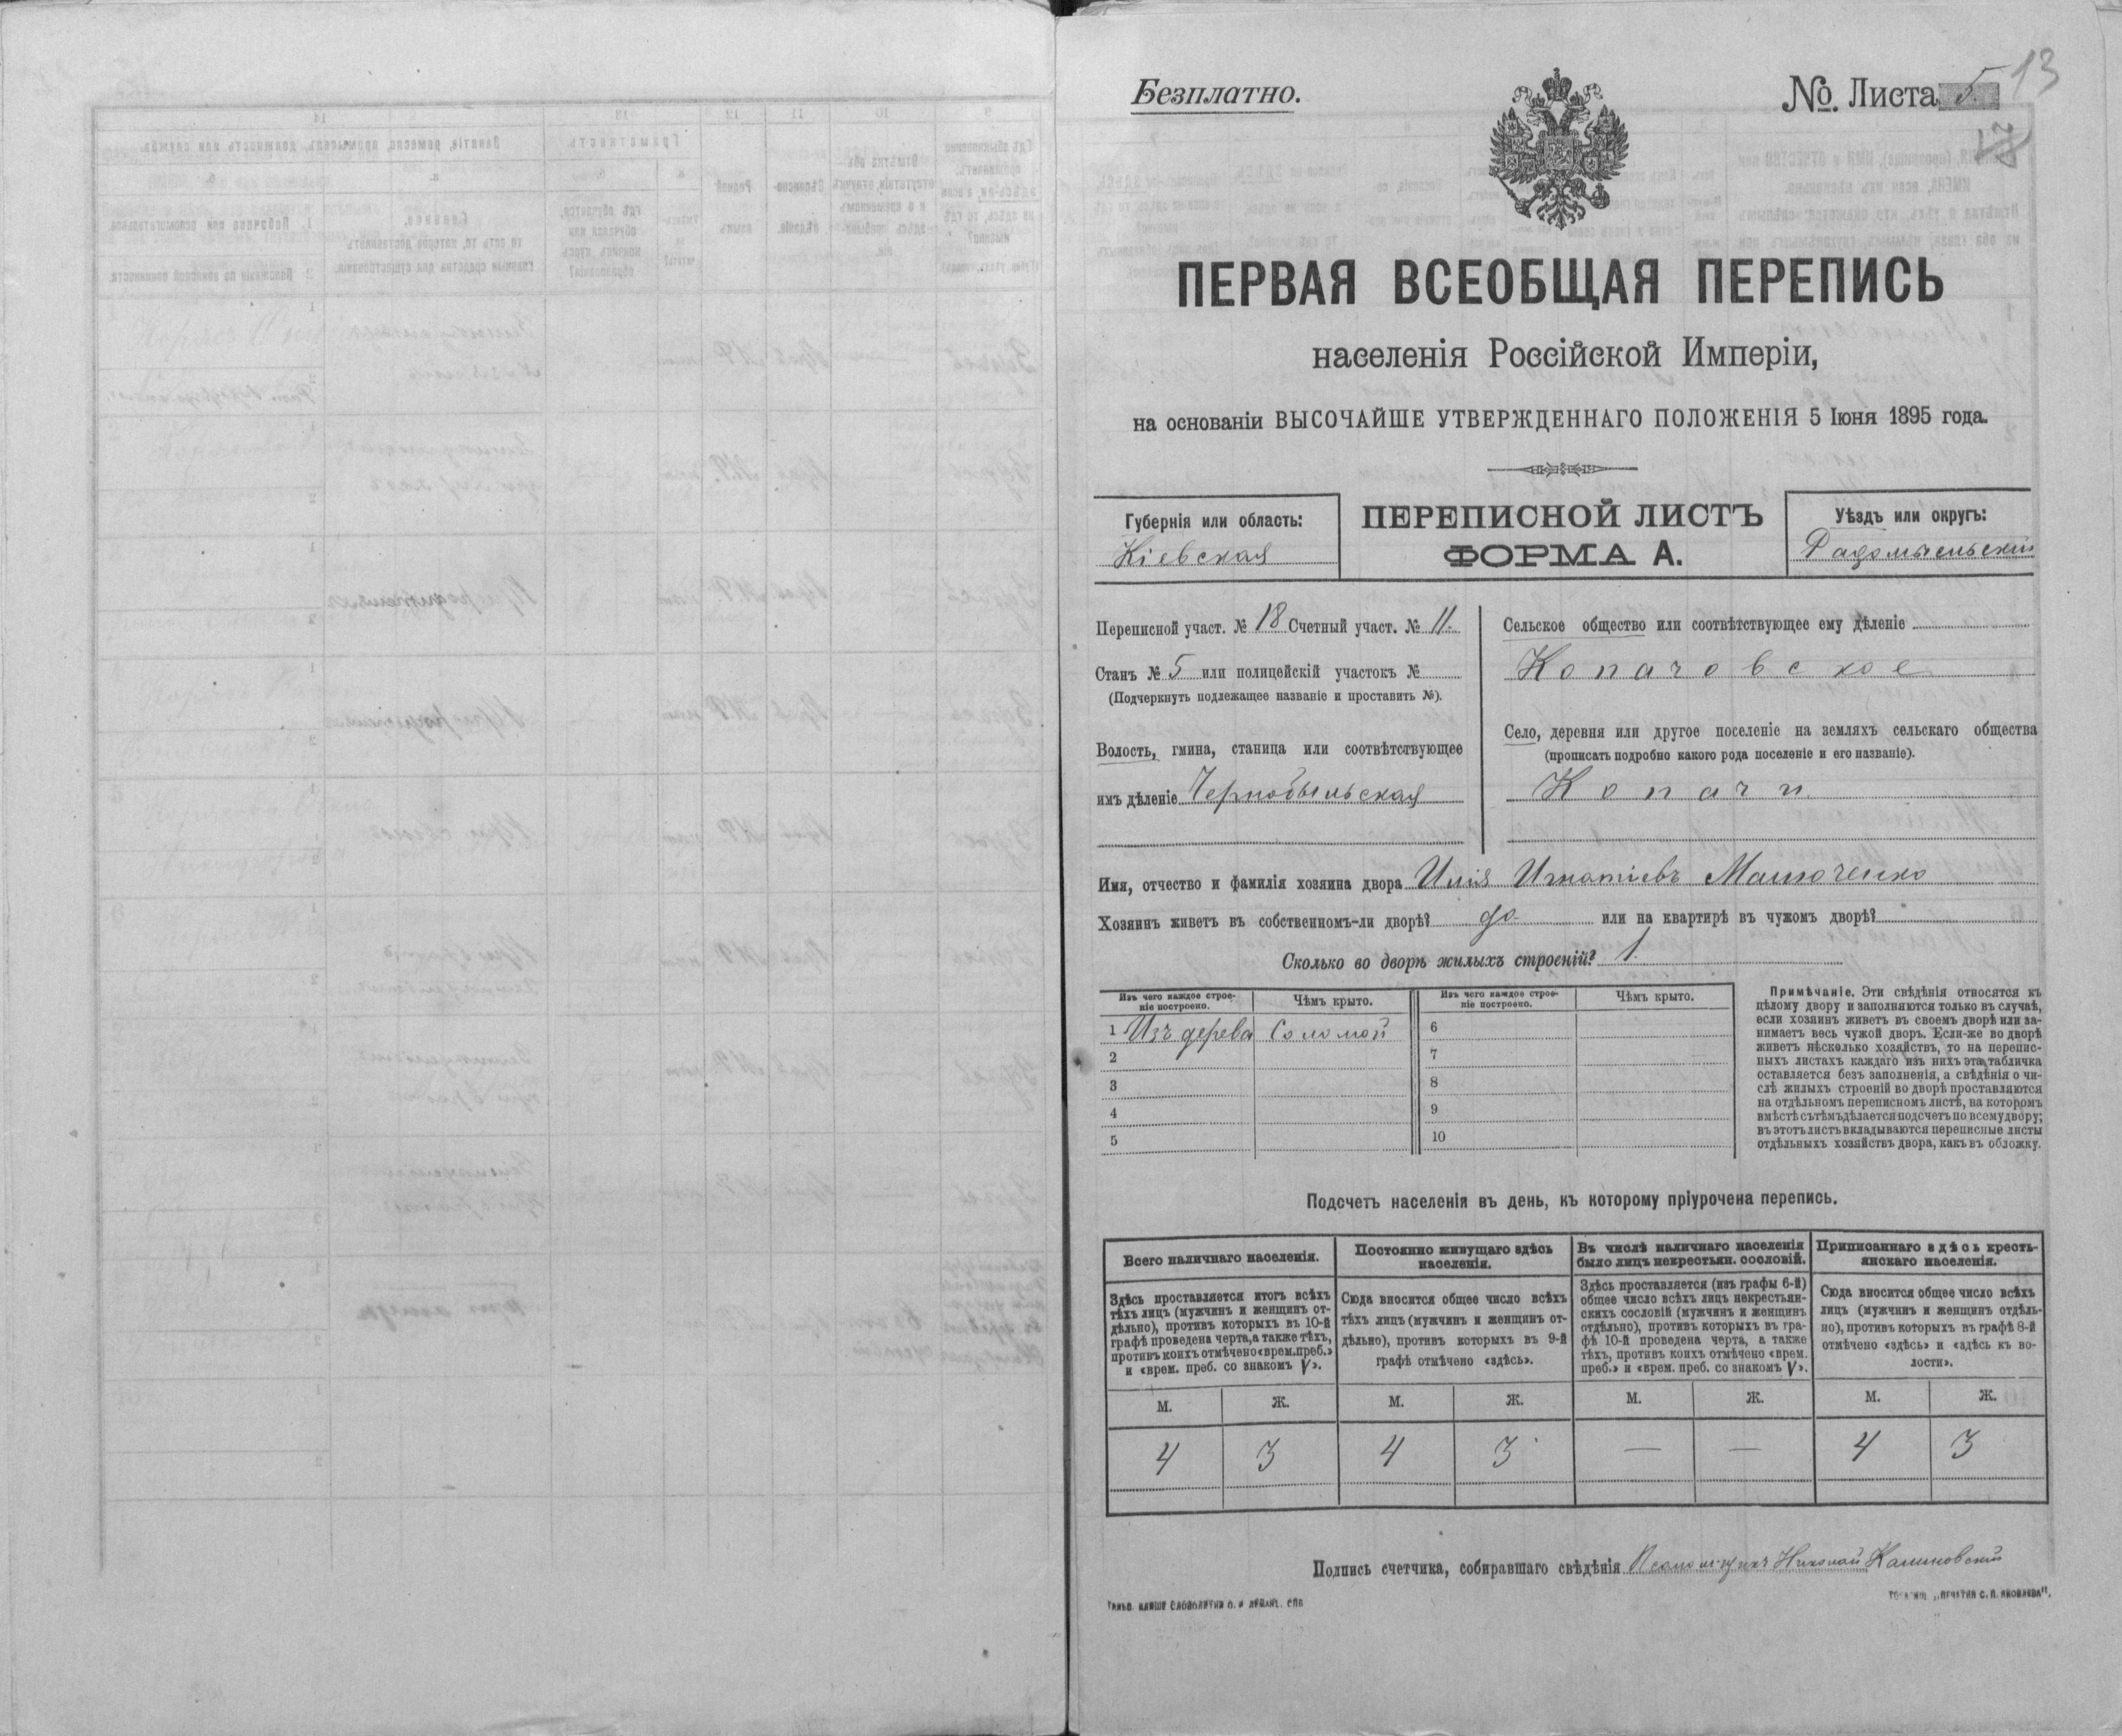 Безплатно.
№. Листа 5.
13
ПЕРВАЯ ВСЕОБЩАЯ ПЕРЕПИСЬ
населенія Россійской Имперіи,
на основаніи ВЫСОЧАЙШЕ УТВЕРЖДЕННАГО ПОЛОЖЕНІЯ 5 Іюня 1895 года.
Губернія или область:
Кіевская
ПЕРЕПИСНОЙ ЛИСТЪ
ФОРМА А.
Уѣздъ или округъ:
Радомысльскій
Переписной участ. № 18 Счетный участ. № 11.
Станъ № 5 или полицейскій участокъ №
(Подчеркнуть подлежащее названіе и проставить №).
Волость, гмина, станица или соотвѣтствующее
имъ дѣленіе Чернобыльская
Сельское общество или соотвѣтствующее ему дѣленіе
Копачовское
Село, деревня или другое поселеніе на земляхъ сельскаго общества
(прописать подробно какого рода поселеніе и его названіе).
Копачи
Имя, отчество и фамилія хозяина двора Илія Игнатіевъ
Хозяинъ живетъ въ собственномъ-ли дворѣ? да или на квартирѣ въ чужомъ дворѣ?
Сколько во дворѣ жилыхъ строеній? 1.
Изъ чего каждое строе-
ніе построено.
Чѣмъ крыто.
Изъ чего каждое строе-
ніе построено.
Чѣмъ крыто.
1 Изъ дерева Соломой 6
2 7
3 8
4 9
5 10
Примѣчаніе. Эти свѣдѣнія относятся къ
цѣлому двору и заполняются только въ случаѣ,
если хозяинъ живетъ въ своемъ дворѣ или за-
нимаетъ весь чужой дворъ. Если-же во дворѣ
живетъ нѣсколько хозяйствъ, то на перепис-
ныхъ листахъ каждаго изъ нихъ эта табличка
оставляется безъ заполненія, а свѣдѣнія о чи-
слѣ жилыхъ строеній во дворѣ проставляются
на отдѣльномъ переписномъ листѣ, на которомъ
вмѣстѣ съ тѣмъ дѣлается подсчетъ по всему двору;
въ этотъ листъ вкладываются переписные листы
отдѣльныхъ хозяйствъ двора, какъ въ обложку.
Подсчетъ населенія въ день, къ которому пріурочена перепись.
Всего наличнаго населенія.
Постоянно живущаго здѣсь
населенія.
Въ числѣ наличнаго населенія
было лицъ некрестьян. сословій.
Приписаннаго здѣсь кресть-
янскаго населенія.
Здѣсь проставляется итогъ всѣхъ
тѣхъ лицъ (мужчинъ и женщинъ от-
дѣльно), противъ которыхъ въ 10-й
графѣ проведена черта, а также тѣхъ,
противъ коихъ отмѣчено «врем. преб.»
и «врем. преб. со знакомъ V».
Сюда вносится общее число всѣхъ
тѣхъ лицъ (мужчинъ и женщинъ от-
дѣльно), противъ которыхъ въ 9-й
графѣ отмѣчено «здѣсь».
Здѣсь проставляется (изъ графы 6-й)
общее число всѣхъ лицъ некрестьян-
скихъ сословій (мужчинъ и женщинъ
отдѣльно), противъ которыхъ въ гра-
фѣ 10-й проведена черта, а также
тѣхъ, противъ коихъ отмѣчено «врем.
преб.» и «врем. преб. со знакомъ V».
Сюда вносится общее число всѣхъ
лицъ (мужчинъ и женщинъ отдѣль-
но), противъ которыхъ въ графѣ 8-й
отмѣчено «здѣсь» и «здѣсь къ во-
лости».
М. Ж. М. Ж. М. Ж. М. Ж.
4 3 4 3 — — 4 3
Подпись счетчика, собиравшаго свѣдѣнія Псаломщикъ Николай Калиновскій